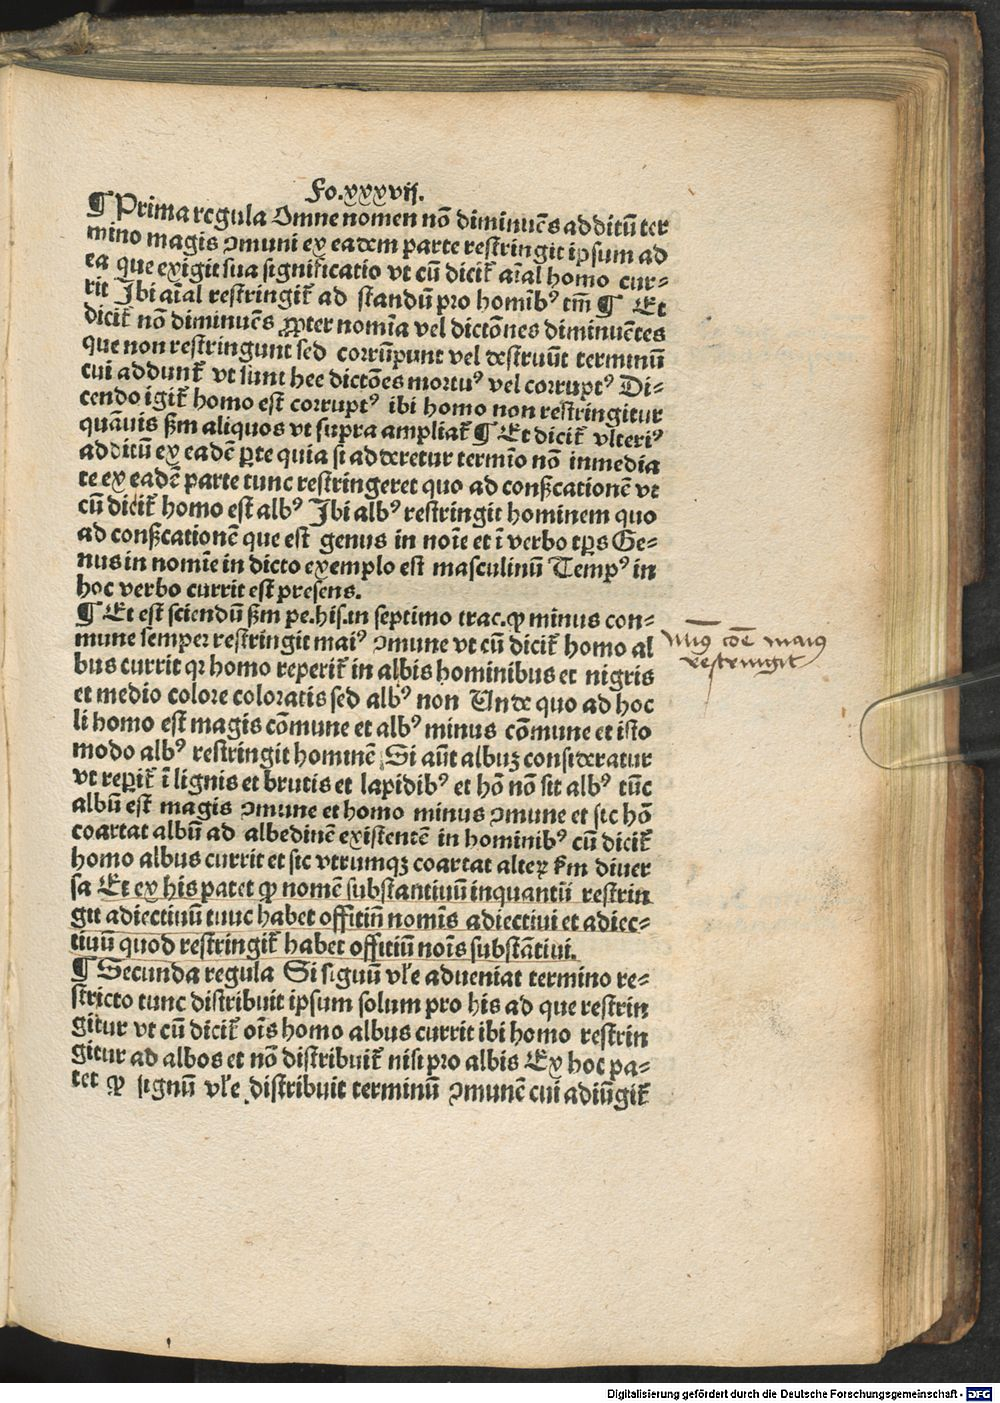 Fo.xxxvij.
¶ Prima regula Omne nomen nō diminuēs additū ter
mino magis ꝯmuni ex eadem parte restringit ipsum ad
ea que exigit sua significatio vt cū dicit̄ aīal homo cur-
rit Ibi aīal restringit̄ ad standū pro homībꝰ tm̄ ¶ Et
dicit̄ nō diminuēs ꝓpter nomīa vel dictōnes diminuētes
que non restringunt sed corrūpunt vel destruūt terminū
cui addunt̄ vt sunt hee dictōes mortuꝰ vel corruptꝰ Di-
cendo igit̄ homo est corruptꝰ ibi homo non restringitur
quāuis ßm aliquos vt supra ampliat̄ ¶ Et dicit̄ vlteriꝰ
additū ex eadē ꝑte quia si adderetur termīo nō inmedia
te ex eadē parte tunc restringeret quo ad conßcationē vt
cū dicit̄ homo est albꝰ Ibi albꝰ restringit hominem quo
ad conßcationē que est genus in noīe et ī verbo tꝑs Ge-
nus in nomīe in dicto exemplo est masculinū Tempꝰ in
hoc verbo currit est presens.
¶ Et est sciendū ßm pe.his.in septimo trac.ꝙ minus con-
mune semper restringit maiꝰ ꝯmune vt cū dicit̄ homo al
bus currit qꝛ homo reperit̄ in albis hominibus et nigris
et medio colore coloratis sed albꝰ non Unde quo ad hoc
li homo est magis cōmune et albꝰ minus cōmune et isto
modo albꝰ restringit hominē Si aūt albuꝫ consideratur
vt reꝑit̄ ī lignis et brutis et lapidibꝰ et hō nō sit albꝰ tūc
albū est magis ꝯmune et homo minus ꝯmune et sic hō
coartat albū ad albedinē existentē in hominibꝰ cū dicit̄
homo albus currit et sic vtrumqꝫ coartat alteꝝ ßm diuer
sa Et ex his patet ꝙ nomē substantiuū inquantū restrin
git adiectiuū tunc habet offitiū nomīs adiectiui et adiec-
tiuū quod restringit̄ habet offitiū noīs substātiui.
¶ Secunda regula Si signū vl'e adueniat termino re-
stricto tunc distribuit ipsum solum pro his ad que restrin
gitur vt cū dicit̄ oīs homo albus currit ibi homo restrin
gitur ad albos et nō distribuit̄ nisi pro albis Ex hoc pa-
tet ꝙ signū vl'e distribuit terminū ꝯmunē cui adiūgit̄
Minꝰ cōe maius
restringit
Digitalisierung gefördert durch die Deutsche Forschungsgemeinschaft - DFG